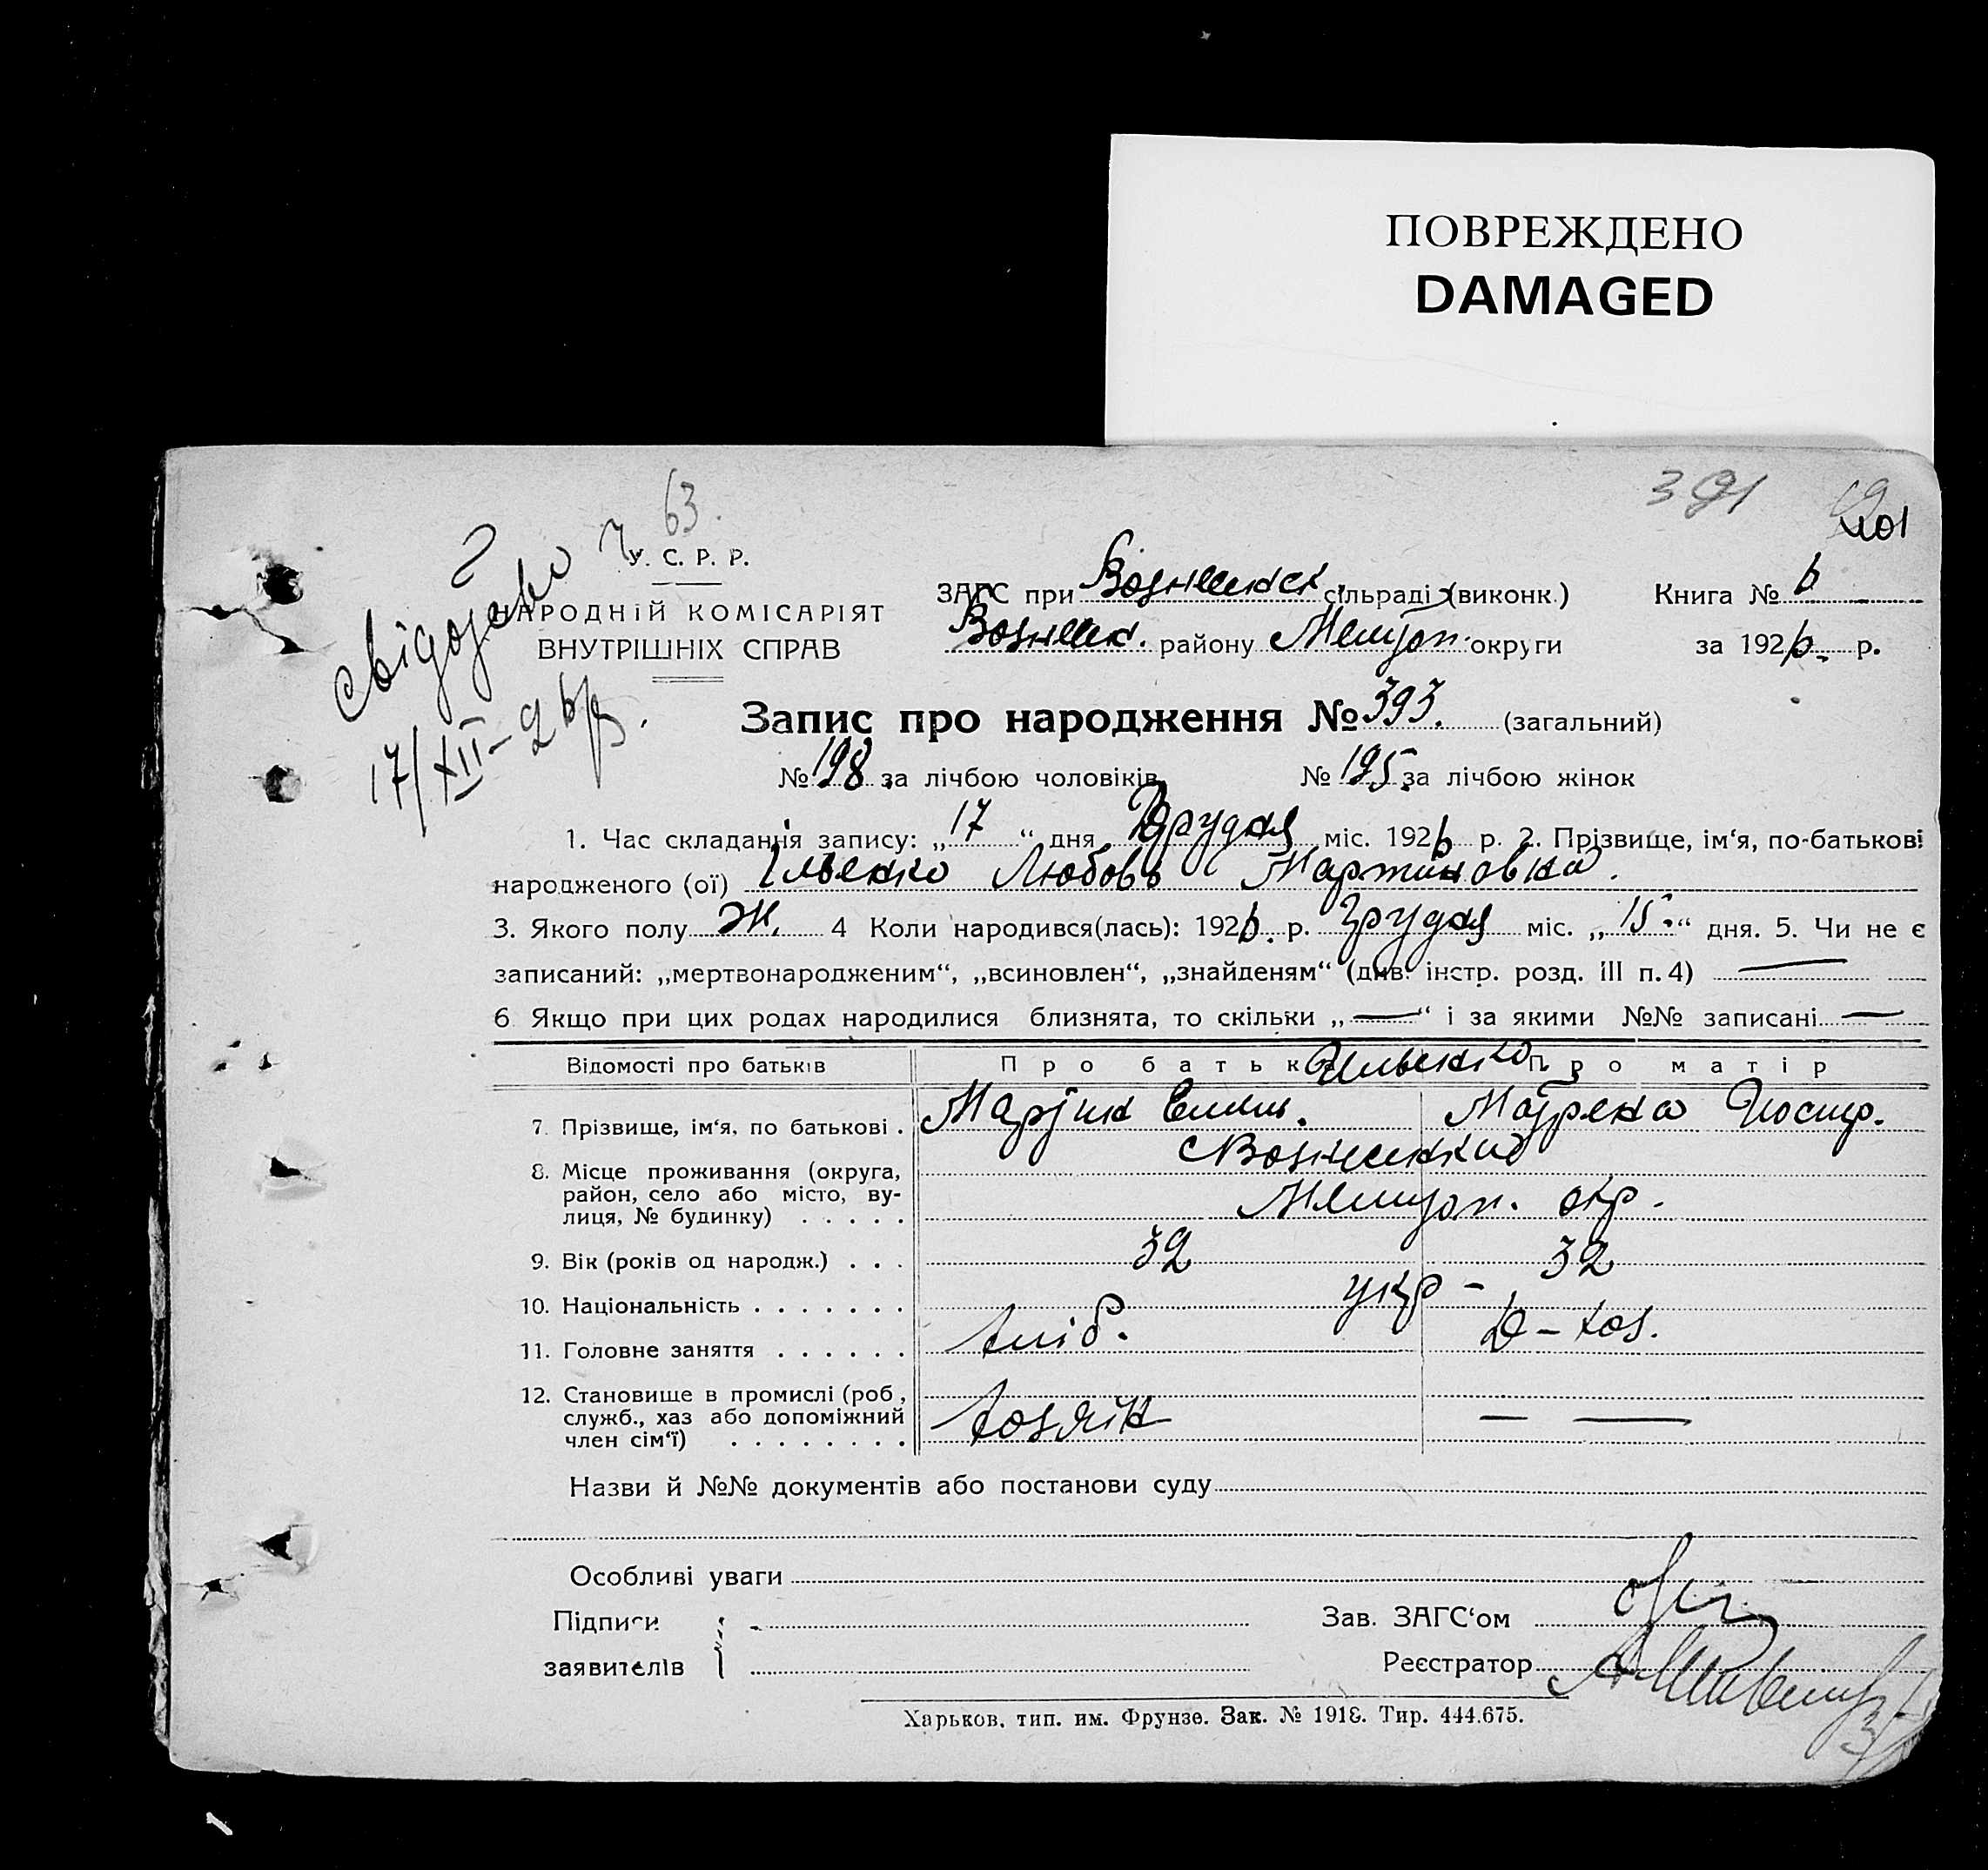 ПОВРЕЖДЕНО
DAMAGED
391
63.
201
У. С. Р. Р.
НАРОДНІЙ КОМІСАРІЯТ
ВНУТРІШНІХ СПРАВ
17/XII-26р.
ЗАГС при Вознешенск сільраді (виконк.) Книга № 6
Вознешен. району Мелітоп. округи за 1926. р.
Запис про народження № 393. (загальний)
№ 198 за лічбою чоловіків № 195. за лічбою жінок
1. Час складання запису: „17“ дня Грудня міс. 1926 р. 2. Прізвище, ім‘я, по-батькові
народженого (ої) Ільєнко Любовь Мартиновна.
3. Якого полу Ж. 4 Коли народився(лась): 1926. р. Грудня міс. „15.“ дня. 5. Чи не є
записаний: „мертвонародженим“, „всиновлен“, „знайденям“ (див. інстр. розд. III п. 4) —
6 Якщо при цих родах народилися близнята, то скільки „—“ і за якими №№ записані —
Відомості про батьків Про батька Про матір
Ильєнко
7. Прізвище, ім‘я, по батькові . Мартин Емел. Мотрена
8. Місце проживання (округа, район, село або місто, вулиця, № будинку) . . . . .
Мелітоп. окр.
9. Вік (років од народж.) . . . 32 32
10. Національність . . . . . . . укр -
11. Головне заняття . . . . . . хліб. Д-хоз.
12. Становище в промислі (роб., служб., хаз або допоміжний член сім‘ї) . . . . . . . . хозяїн — —
Назви й №№ документів або постанови суду
Особливі уваги
Підписи заявителів
Зав. ЗАГС‘ом
Реєстратор
Харьков, тип. им. Фрунзе. Зак. № 1918. Тир. 444.675.